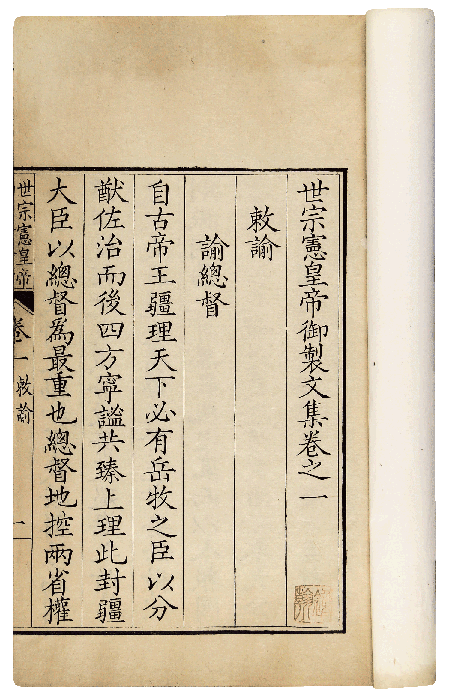 世宗憲皇帝御製文集卷之一
敕諭
諭總督
自古帝王疆理天下必有岳牧之臣以分
猷佐治而後四方寧謐共臻上理此封疆
大臣以總督爲最重也總督地控兩省權
世宗憲皇帝
卷一 敕諭
一